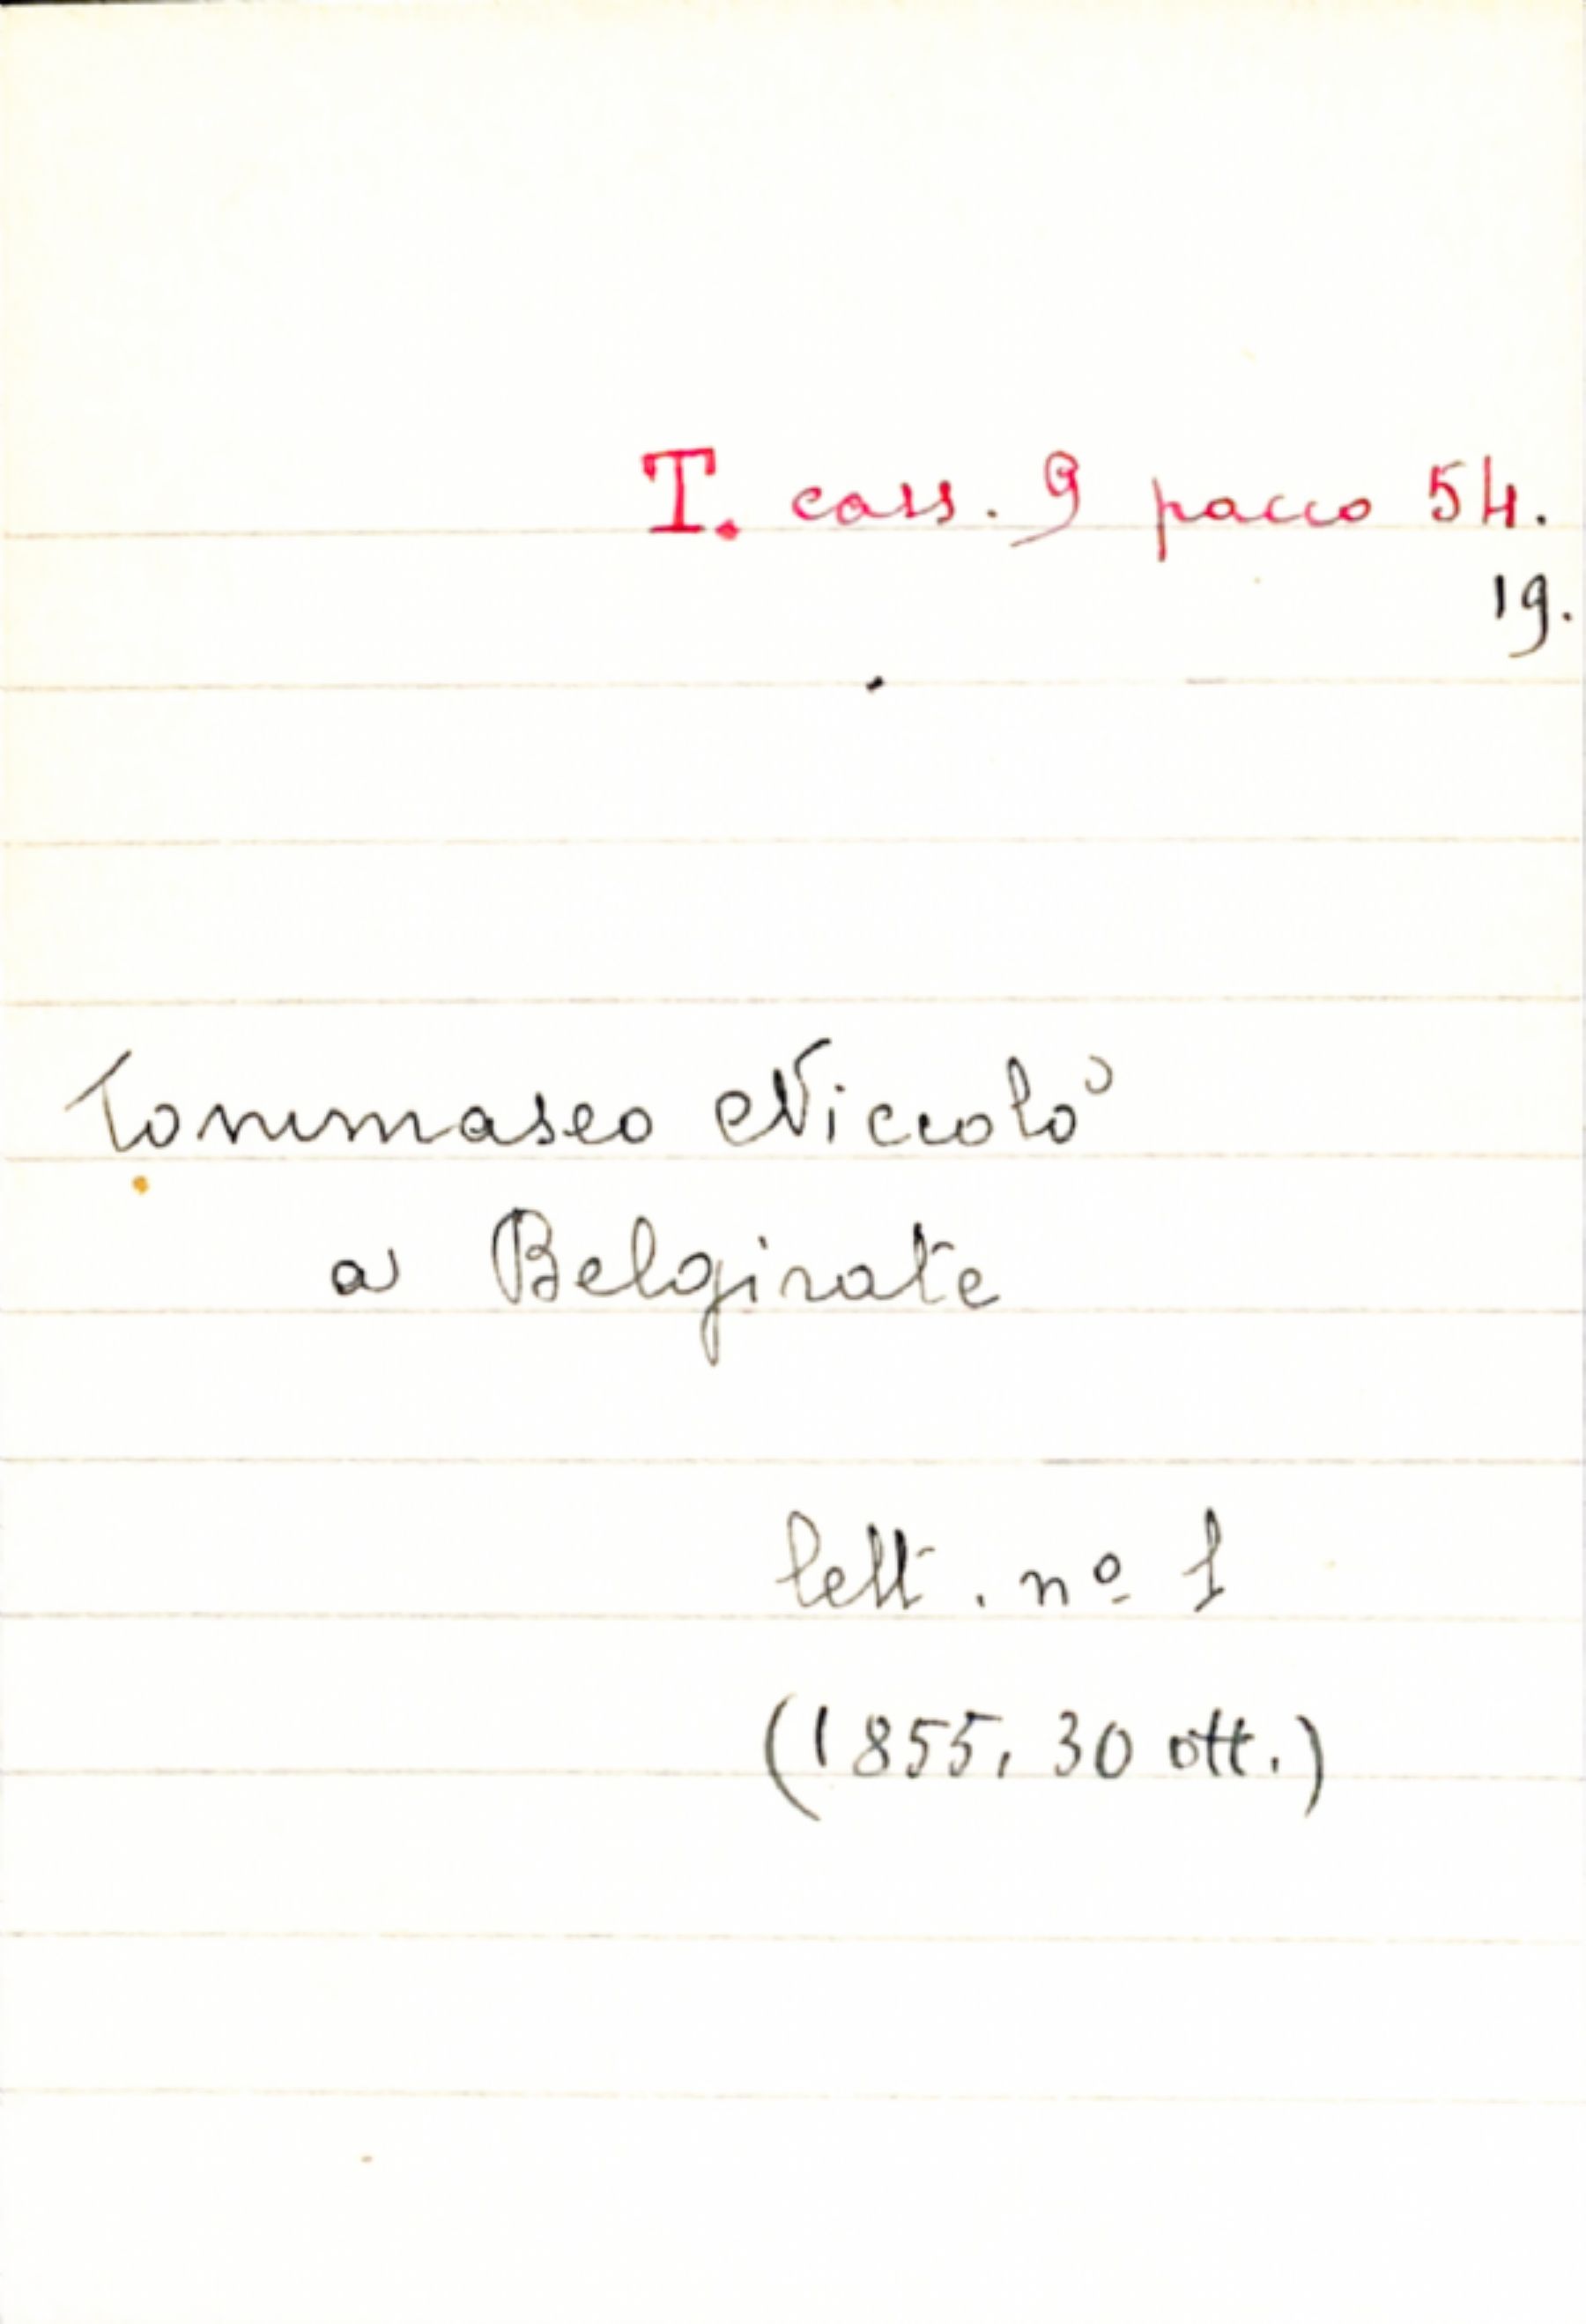 T. cass. 9 pacco 54.
19.
Tommaseo Niccolò
a Belgirate
lett. nº 1
(1855, 30 ott.)